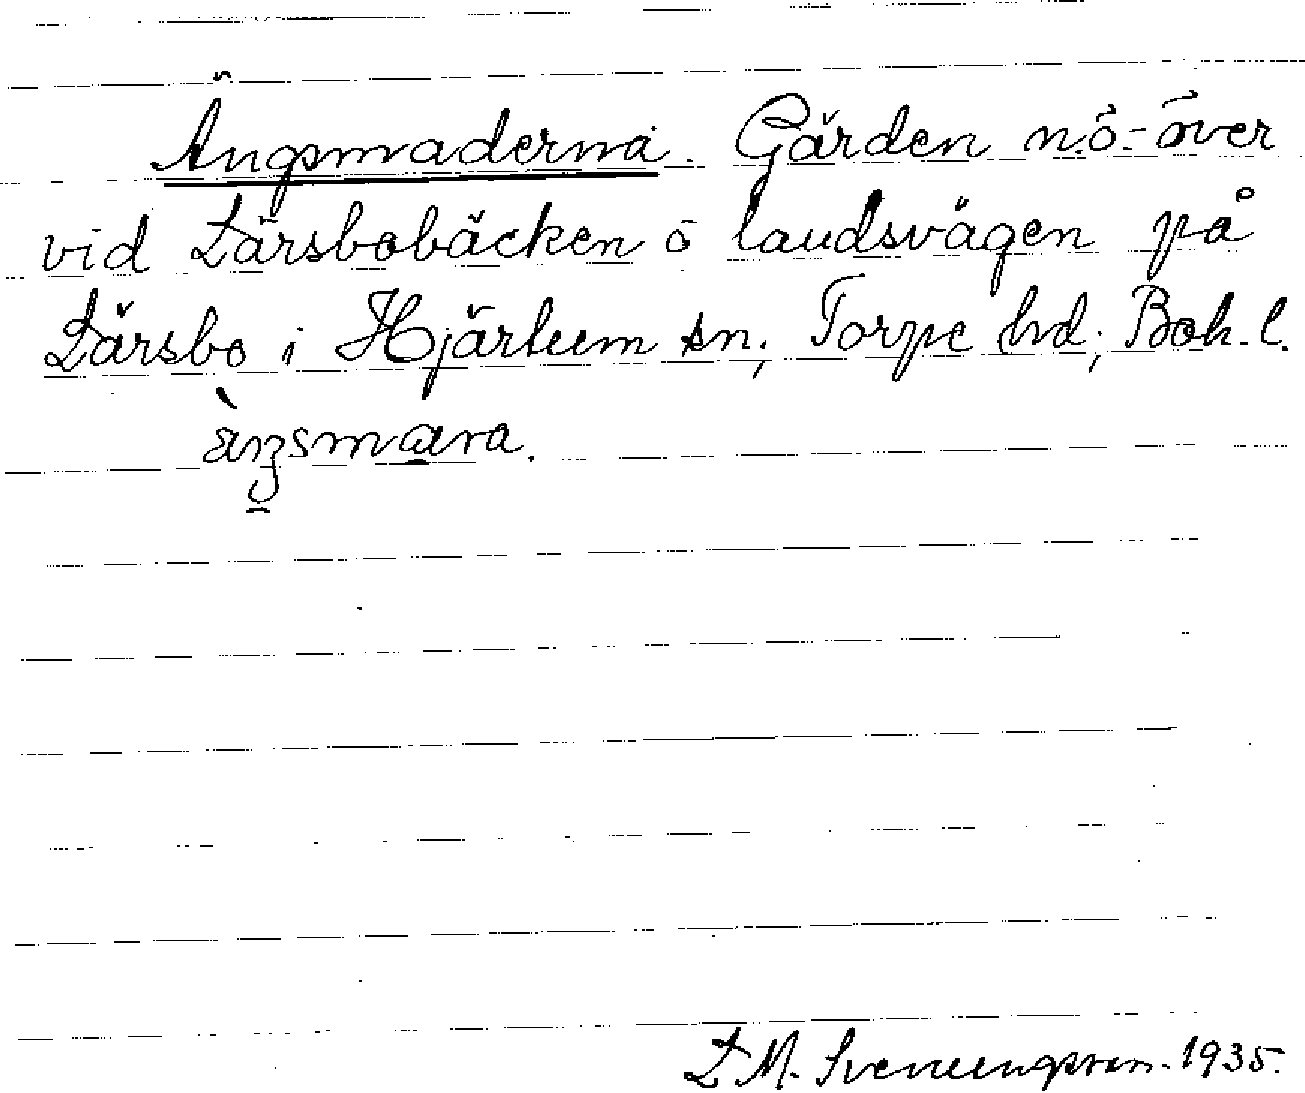 Ängsmaderna. Gärden n.ö.-över
vid Lärsbobäcken ö landsvägen på
Lärsbo i Hjärtum sn; Torpe hd; Boh. l.
äŋsmara.
L M. Sveningsson. 1935.